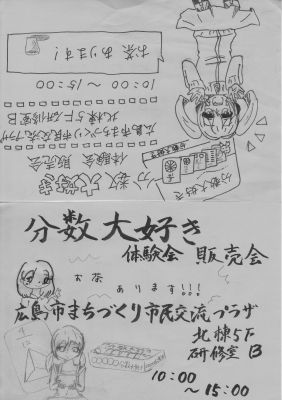 お茶あります！
10:00～15:00
分数大好き
体験会 販売会
広島市まちづくり市民交流プラザ
北棟5F研修室B
分数大好き
分数大好き
体験会 販売会
お茶
あります!!!
広島市まちづくり市民交流プラザ
北棟5F
研修室B
10:00
～15:00